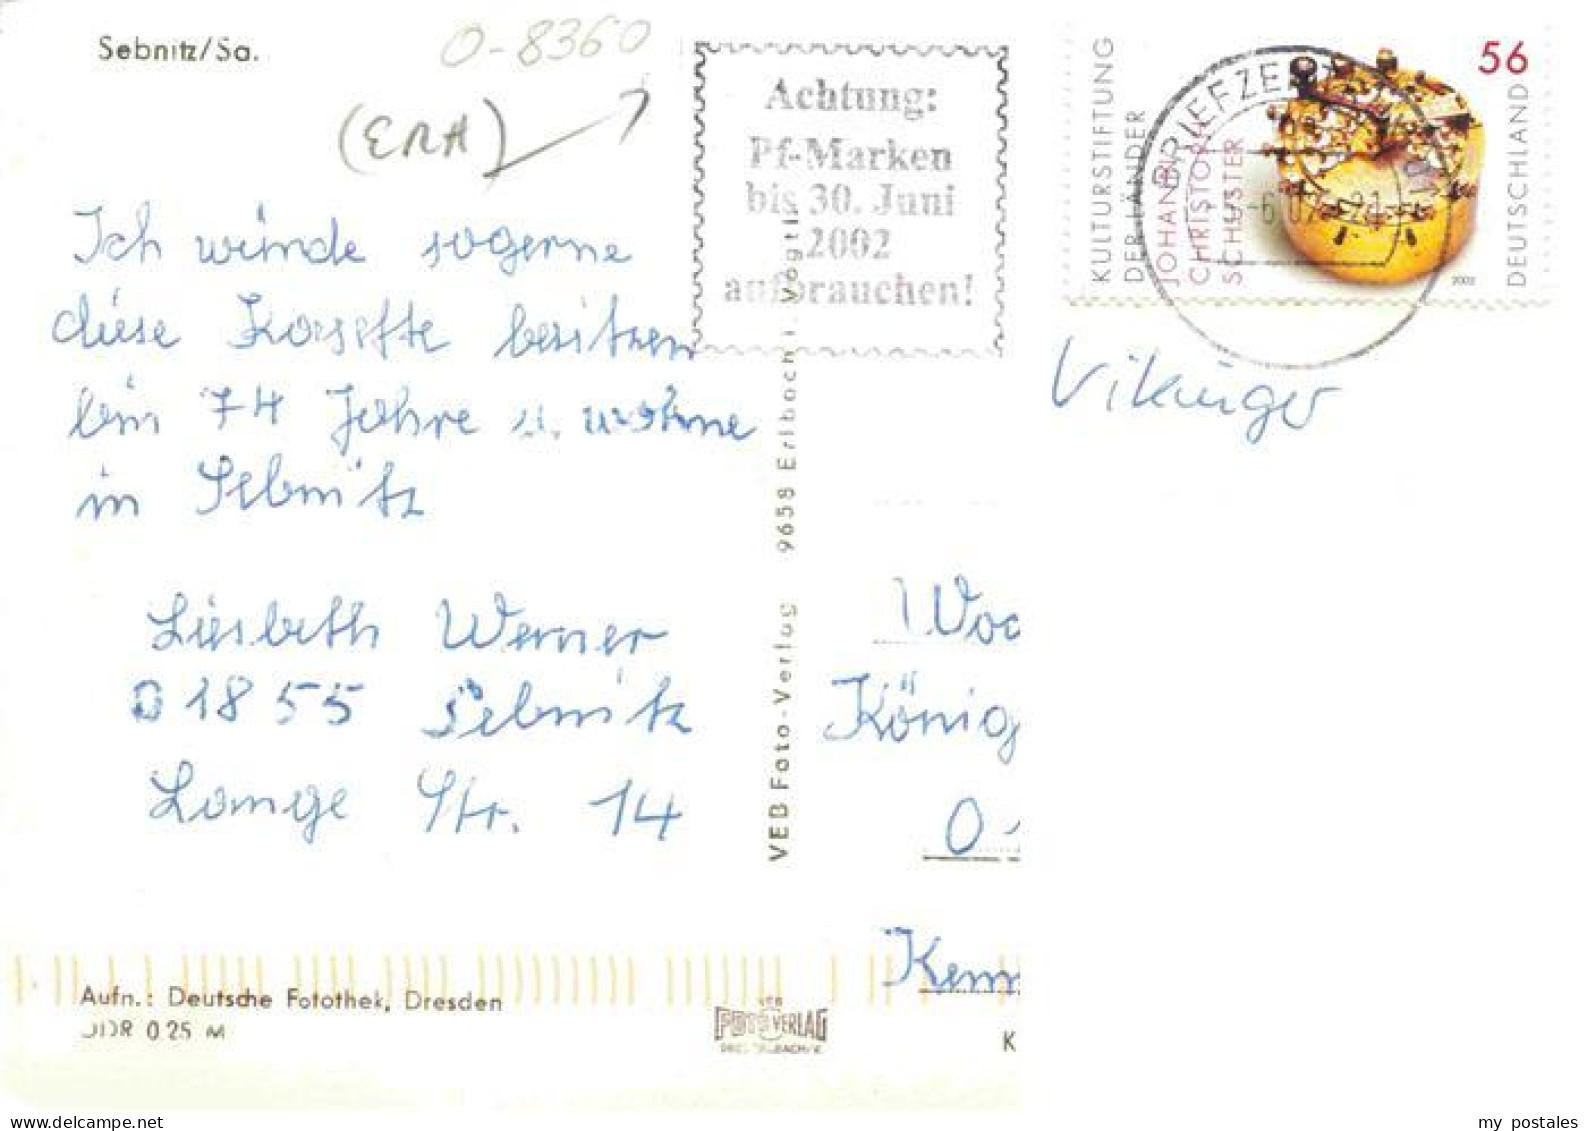 Sebnitz/Sa.
O-8360
Achtung:
Pf-Marken
bis 30. Juni
2002
aufbrauchen!
56
KULTURSTIFTUNG
DER LÄNDER
JOHANN
CHRISTOPH
SCHUSTER
DEUTSCHLAND
2002
BRIEFZE
Ich würde sogerne
diese Kassette besitzen
bin 74 Jahre u. wohne
in Sebnitz
Liesbeth Werner
01855 Sebnitz
Lange Str. 14
VEB Foto-Verlag 9658 Erlbach i. Vogtl.
Wikinger
König
O-
Kenn
Aufn.: Deutsche Fotothek, Dresden
DDR 0,25 M
VEB
FOTO VERLAG
K
delcampe.net
my postales